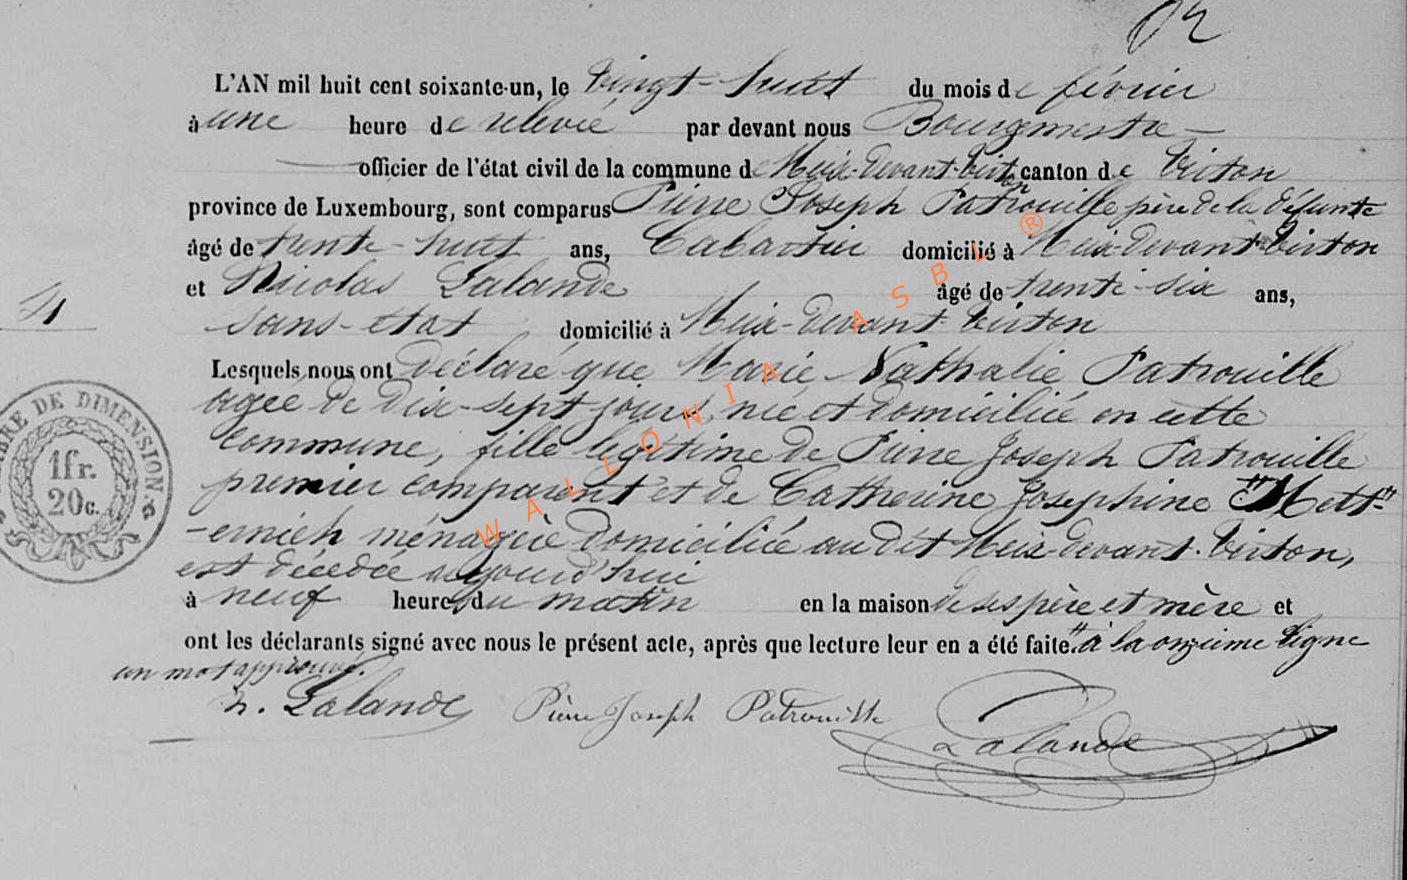 L'AN mil huit cent soixante-un, le vingt-huit du mois de février
à une heure de relevée par devant nous Bourgmestre
officier de l'état civil de la commune de Meix-devant-Virton canton de Virton
province de Luxembourg, sont comparus Pierre Joseph Patrouille père de la défunte
âgé de trente-huit ans, Cabartier domicilié à Meix-devant-Virton
et Nicolas Lalande âgé de trente-six ans,
4
sans-état domicilié à Meix-devant-Virton
Lesquels nous ont déclaré que Marie Nathalie Patrouille
agée de dix-sept jours, née et domiciliée en cette
commune, fille légitime de Pierre Joseph Patrouille
premier comparent et de Catherine Josephine "Mett-"
-ernich ménagère domiciliée au dit Meix-devant-Virton,
est décédée aujourd'hui
à neuf heures du matin en la maison de ses père et mère et
ont les déclarants signé avec nous le présent acte, après que lecture leur en a été faite. "à la onzième ligne
un mot approuvé.
N. Lalande Pierre Joseph Patrouille Lalande
DE DIMENSION.
1fr.
20c.
WALLONIA ASBL ®